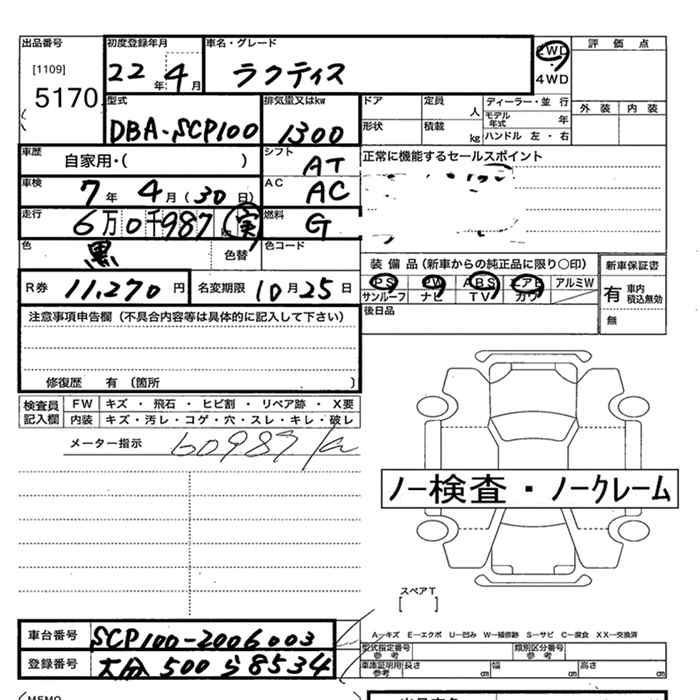 出品番号 初度登録年月 車名・グレード 2WD 評価点
[1109] 22年 4月 ラクティス ・
5170 4WD
型式 排気量又はkw ドア 定員 人 ディーラー・並行 外装 内装
DBA-SCP100 1300 モデル年式 年
形状 積載 kg ハンドル 左・右
車歴 自家用・( ) シフト AT 正常に機能するセールスポイント
車検 7年 4月(30日) AC AC
走行 6万0千987 実 燃料 G
色 黒 色替 色コード
装備品(新車からの純正品に限り○印) 新車保証書
R券 11,270円 名変期限 10月25日 PS PW ABS エアB アルミW 有 車内積込無効
サンルーフ ナビ TV カワ
後日品 無
注意事項申告欄(不具合内容等は具体的に記入して下さい)
修復歴 有(箇所 )
検査員記入欄 FW キズ・飛石・ヒビ割・リペア跡・X要
内装 キズ・汚レ・コゲ・穴・スレ・キレ・破レ
メーター指示 60987
ノー検査・ノークレーム
スペアT
[ ]
A―キズ E―エクボ U―凹み W―補修跡 S―サビ C―腐食 XX―交換済
車台番号 SCP100-2006003 型式指定番号 参考 類別区分番号 参考
登録番号 大分 500 ら 8534 車庫証明用 参考 長さ cm 幅 cm 高さ cm
(MEMO